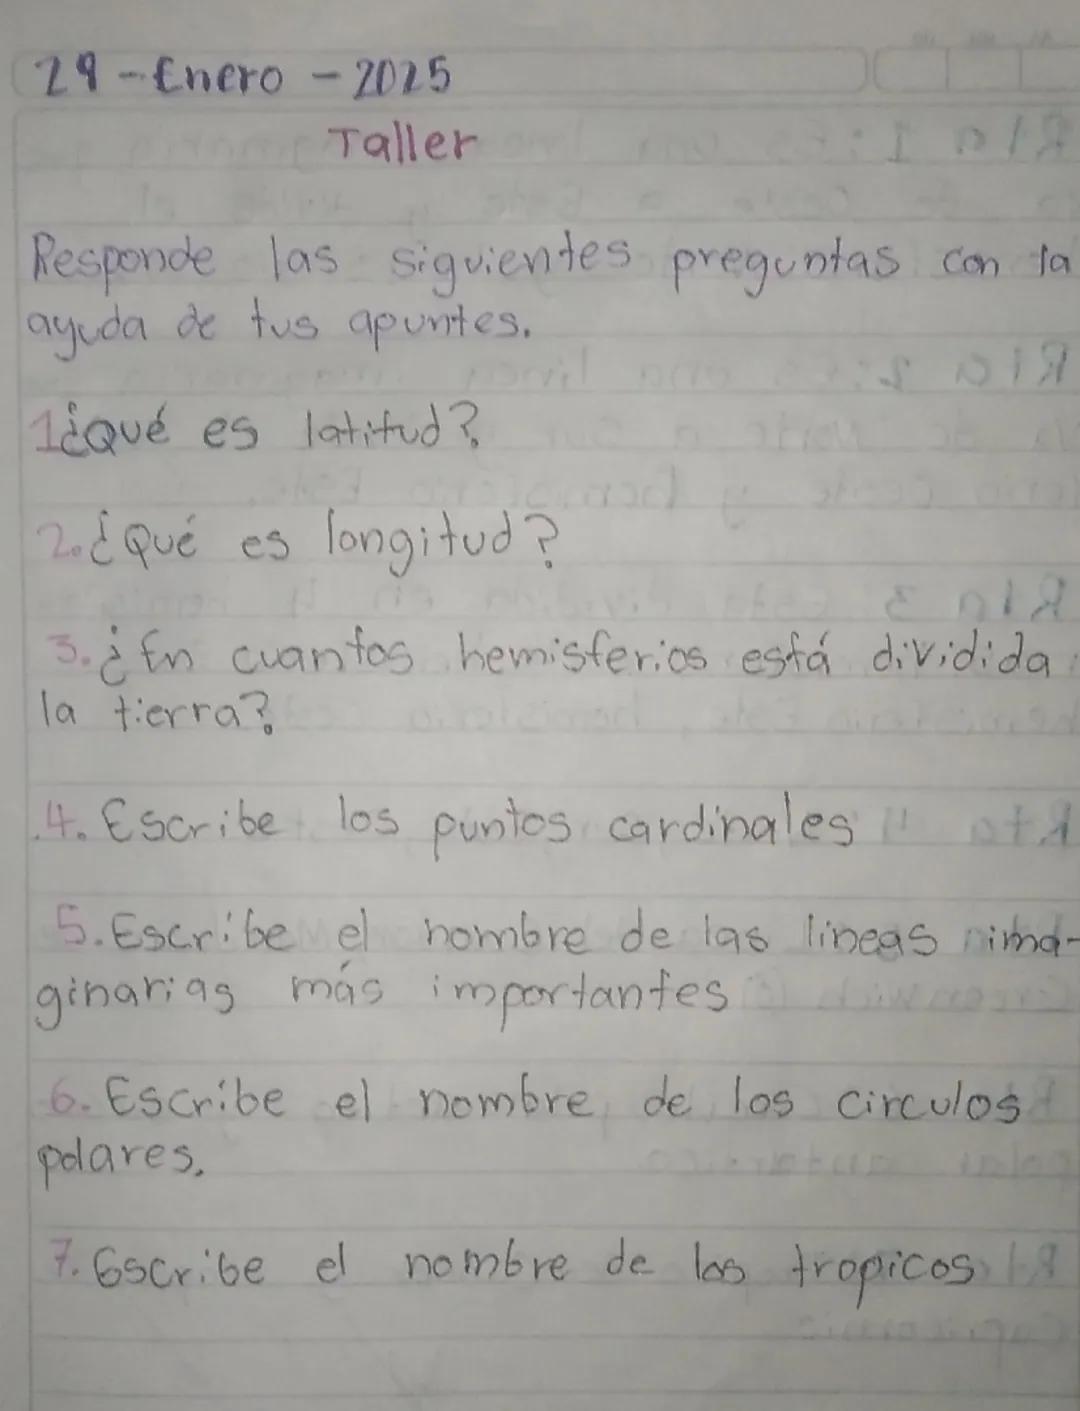 29-Enero-2025
Taller
Responde las siguientes preguntas con la
ayuda de tus apuntes.
1¿Qué es latitud?
2.¿Qué es longitud?
3.¿En cuantos hemisferios está dividida
la tierra?
4. Escribe los puntos cardinales
5. Escribe el nombre de las lineas ima-
ginarias más importantes
6. Escribe el nombre de los circulos
polares.
7. Escribe el nombre de los tropicos